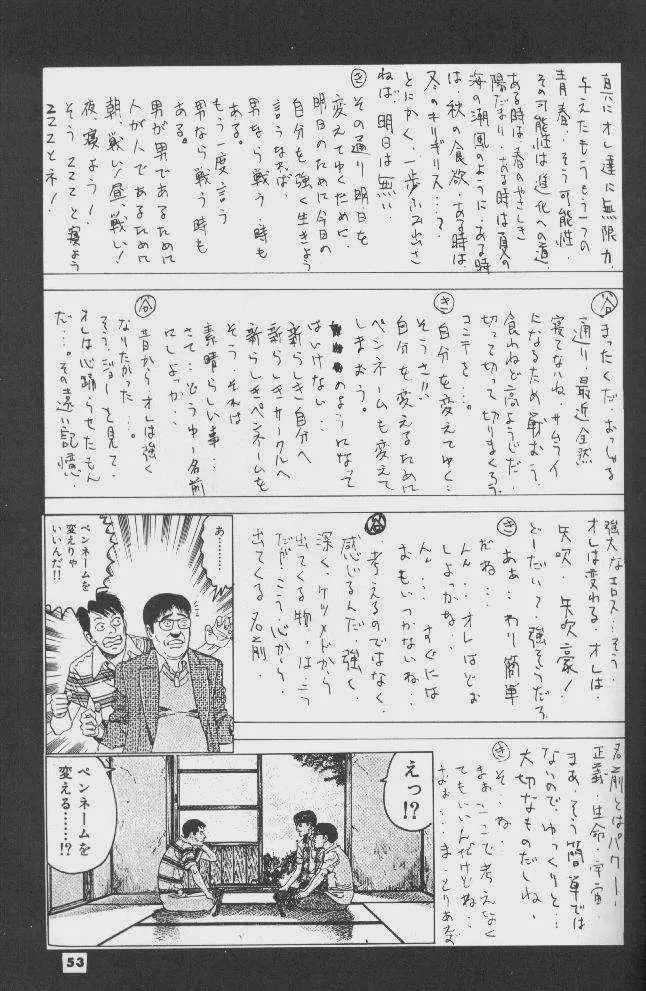 真にオレ達に無限力、
与えたもうもう一つの
青春、そう可能性、
その可能性は進化への道、
ある時は春のやさしき
陽だまり、ある時は夏の
海の潮風のように、ある時
は、秋の食欲、ある時は、
冬のキリギリス…?
とにかく、一歩ふみ出さ
ねば、明日は無い…
き その通り、明日を
変えてゆくために、
明日のために今日の
自分を強く生きよう
言うなれば、
男なら戦う時も
ある。
もう一度言う
男なら戦う時も
ある。
男が男であるために
人が人であるために
朝、戦い!昼、戦い!
夜、寝よう!
そうZZZと寝よう
ZZZとネ!
まったくだ。おっしゃる
通り、最近全然
寝てないね、サムライ
になるため、戦おう、
食わねど高ようじだ、
切って切って切りまくろう
コミケを…。
き 自分を変えてゆく…
そうさ!!
自分を変えるために
ペンネームも変えて
しまおう。
のようになって
はいけない…
新らしき自分へ
新らしきサークルへ
新らしきペンネームを
そう、それは
素晴らしい事…
さて…どうゆー名前
にしよっか、
昔からオレは強く
なりたかった…
そう、ジョーを見て、
オレは心踊らせたもん
だ…。その遠い記憶
強大なエロス…そう、
オレは変わる、オレは、
矢吹、矢吹豪!
どーだい?強そうだろ
き ああ…わり簡単
だね…
んん…オレはどお
しよっかな…
んん…すぐには
おもいつかないね…
考えるのではなく、
感じるんだ、強く、
深く、ケツメドから
出てくる物、はこう
だが…こう、心から
出てくる名前、
あ……
ペンネームを
変えりゃ
いいんだ!!
名前とはパワー!
正義、生命、宇宙、
まあ、そう簡単では
ないので、ゆっくりと…
大切なものだしね、
き そ…ね…
まぁ、ここで考えなく
てもいいんだけどね…
おぉ…ま、とりあえず
えっ!?
ペンネームを
変える……!?
53